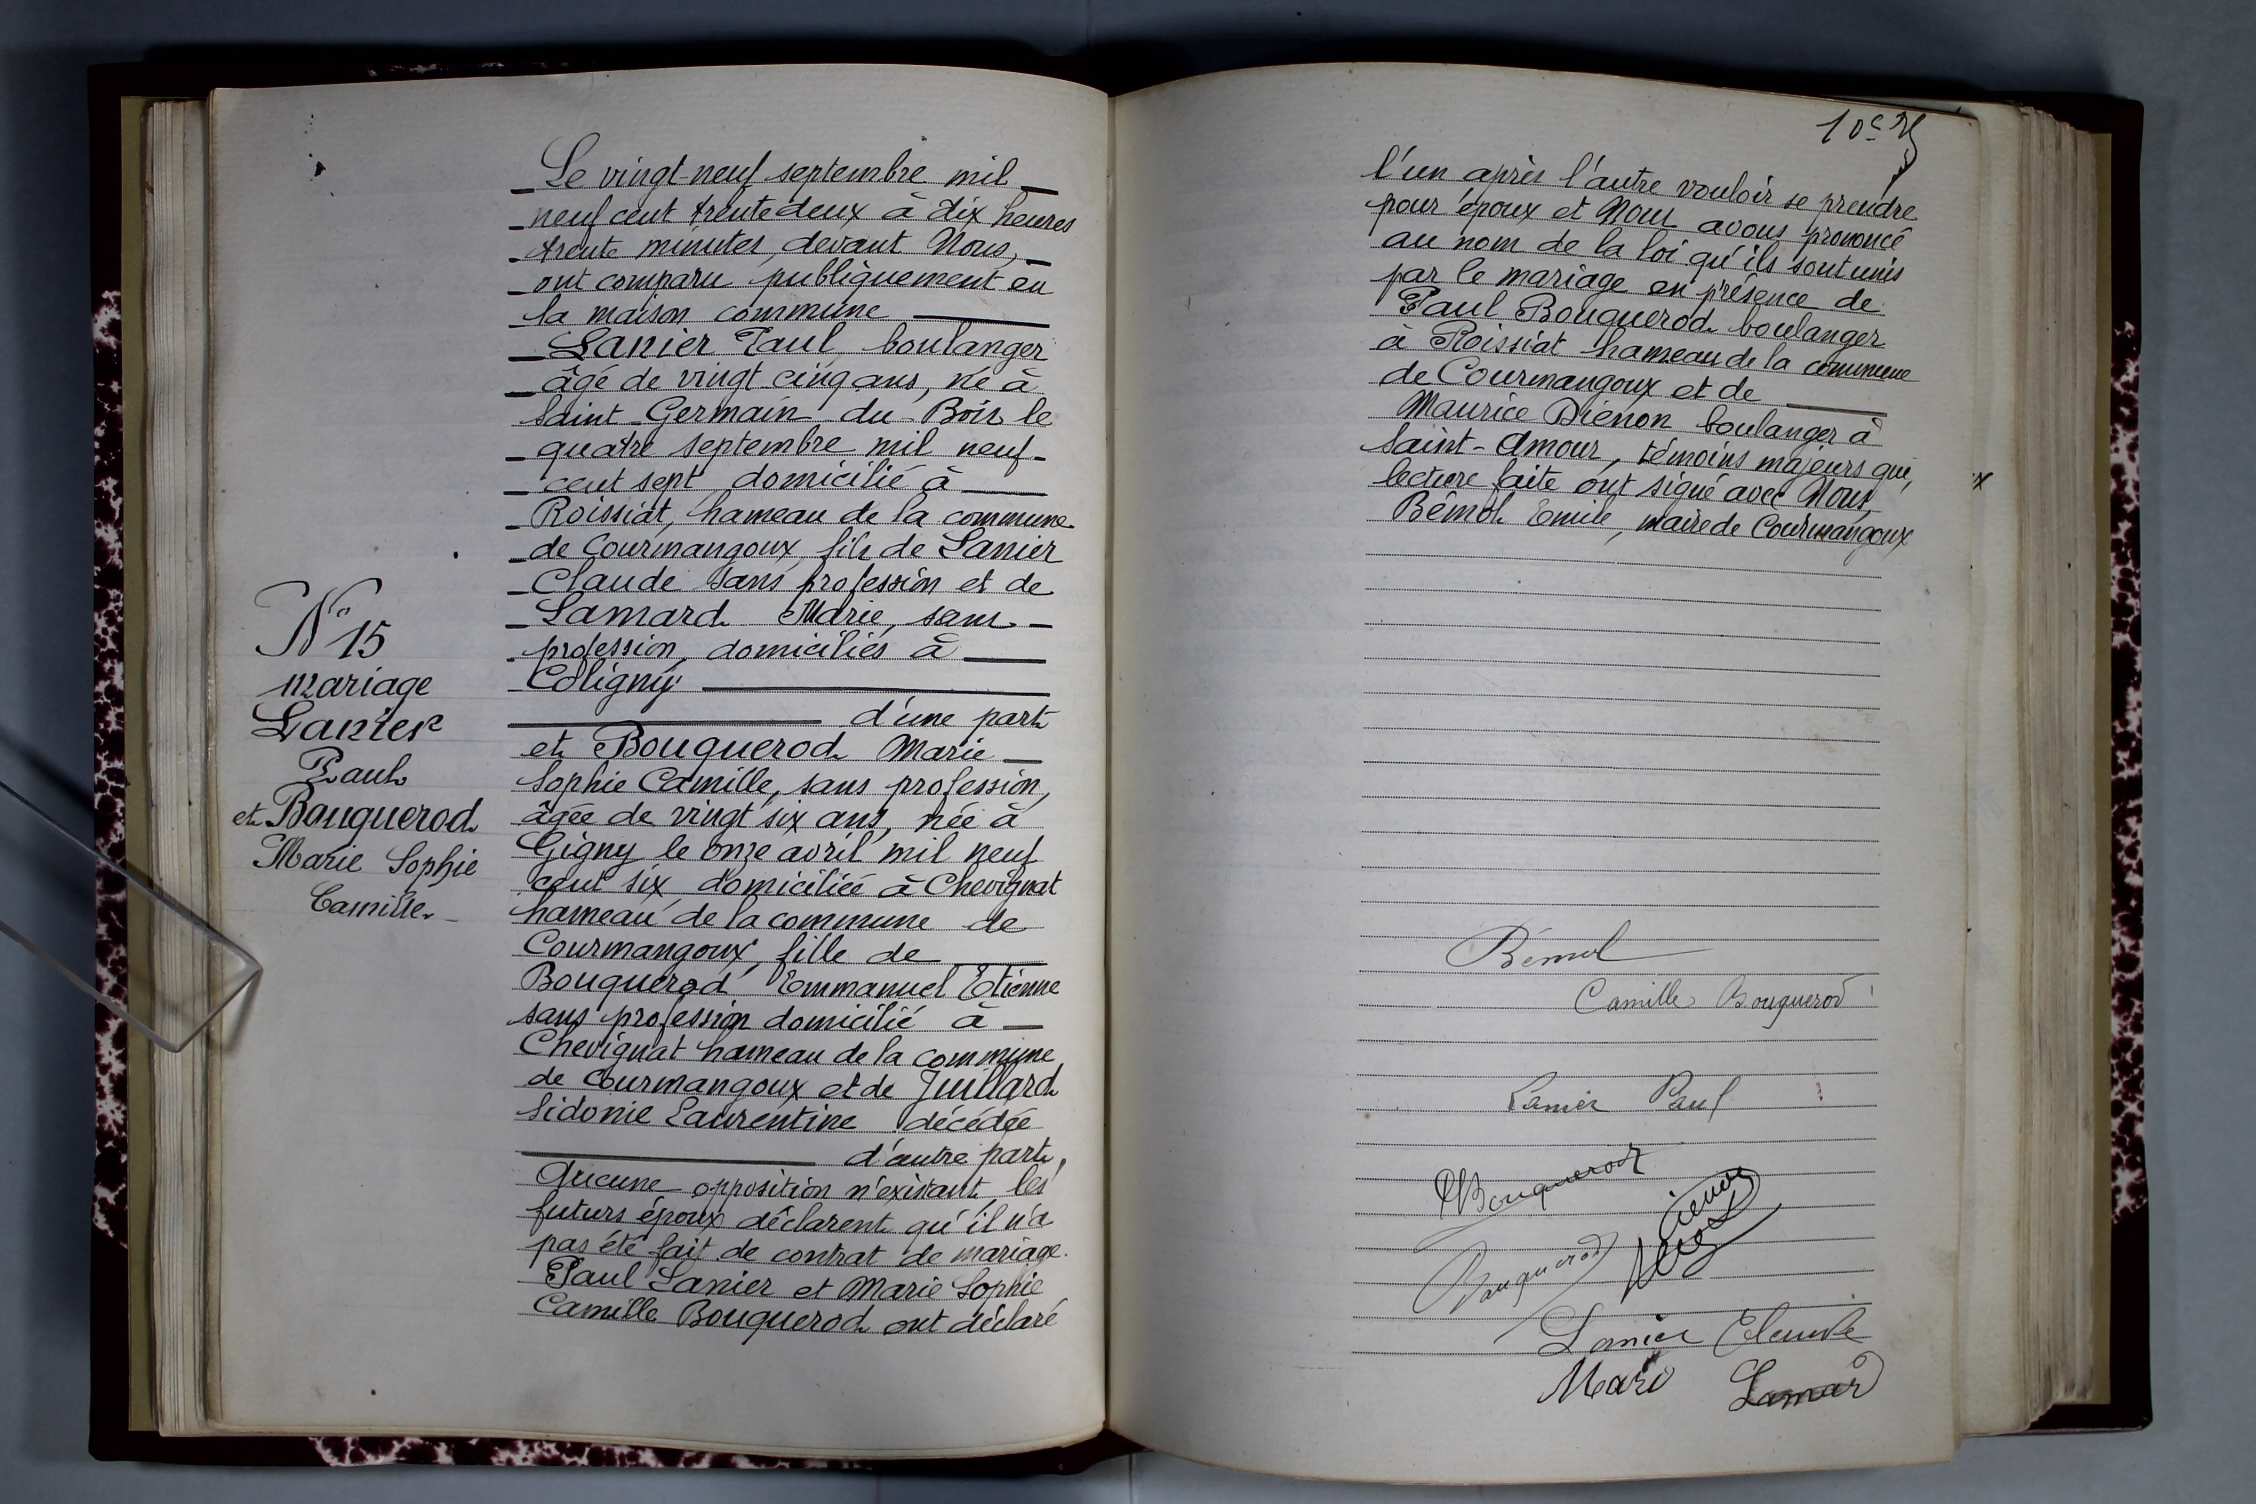 Le vingt-neuf septembre mil
neuf cent trente deux à dix heures
trente minutes, devant Nous,
ont comparu publiquement en
la maison commune
Lanier Paul, boulanger
âgé de vingt-cinq ans, né à
Saint-Germain-du-Bois le
quatre septembre mil neuf
cent sept domicilié à
Roissiat, hameau de la commune
de Courmangoux, fils de Lanier
Claude sans profession et de
Lamard Marie, sans
profession, domiciliés à
Coligny
d'une part
et Bouquerod Marie
Sophie Camille, sans profession,
âgée de vingt six ans, née à
Gigny le onze avril mil neuf
cent six, domiciliée à Chevignat
hameau de la commune de
Courmangoux, fille de
Bouquerod Emmanuel Etienne
sans profession domicilié à
Chevignat hameau de la commune
de Courmangoux et de Juillard
Sidonie Laurentine décédée
d'autre part,
Aucune opposition n'existant, les
futurs époux déclarent qu'il n'a
pas été fait de contrat de mariage.
Paul Lanier et Marie Sophie
Camille Bouquerod ont déclaré
N° 15
mariage
Lanier
Paul
et Bouquerod
Marie Sophie
Camille
l'un après l'autre vouloir se prendre
pour époux et Nous avons prononcé
au nom de la loi qu'ils sont unis
par le mariage en présence de
Paul Bouquerod boulanger
à Roissiat hameau de la commune
de Courmangoux et de
Maurice Diénon boulanger à
Saint-Amour, témoins majeurs qui,
lecture faite ont signé avec Nous,
Bémol Emile, maire de Courmangoux
Bémol
Camille Bouquerod
Lanier Paul
Bouquerod
Bouquerod
Lanier Claude
Mari Lamard